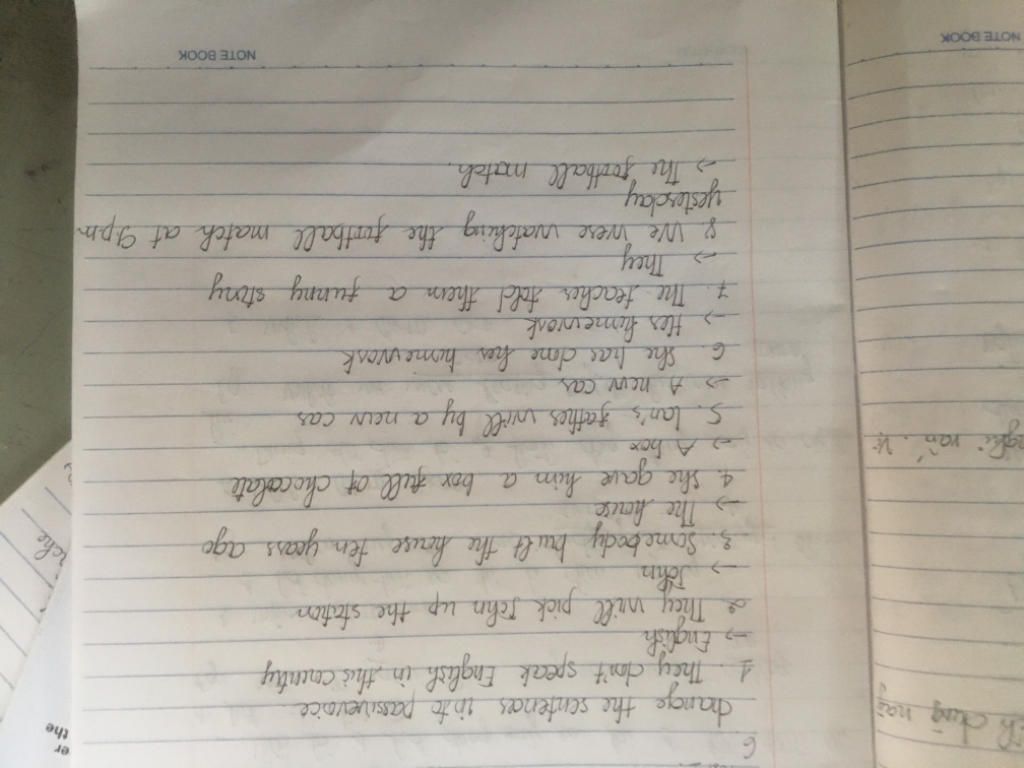 6
change the sentences into passivevoice
1. They don't speak English in this country
→ English
2. They will pick John up the station
→ John
3. Somebody built the house ten years ago
→ The house
4. She gave him a box full of chocolate
→ A box
5. Lan's father will by a new car
→ A new car
6. She has done her homework
→ Her homework
7. The teacher told them a funny story
→ They
8. We were watching the football match at 9pm
yesterday
→ The football match.
NOTE BOOK
NOTE BOOK
er
the